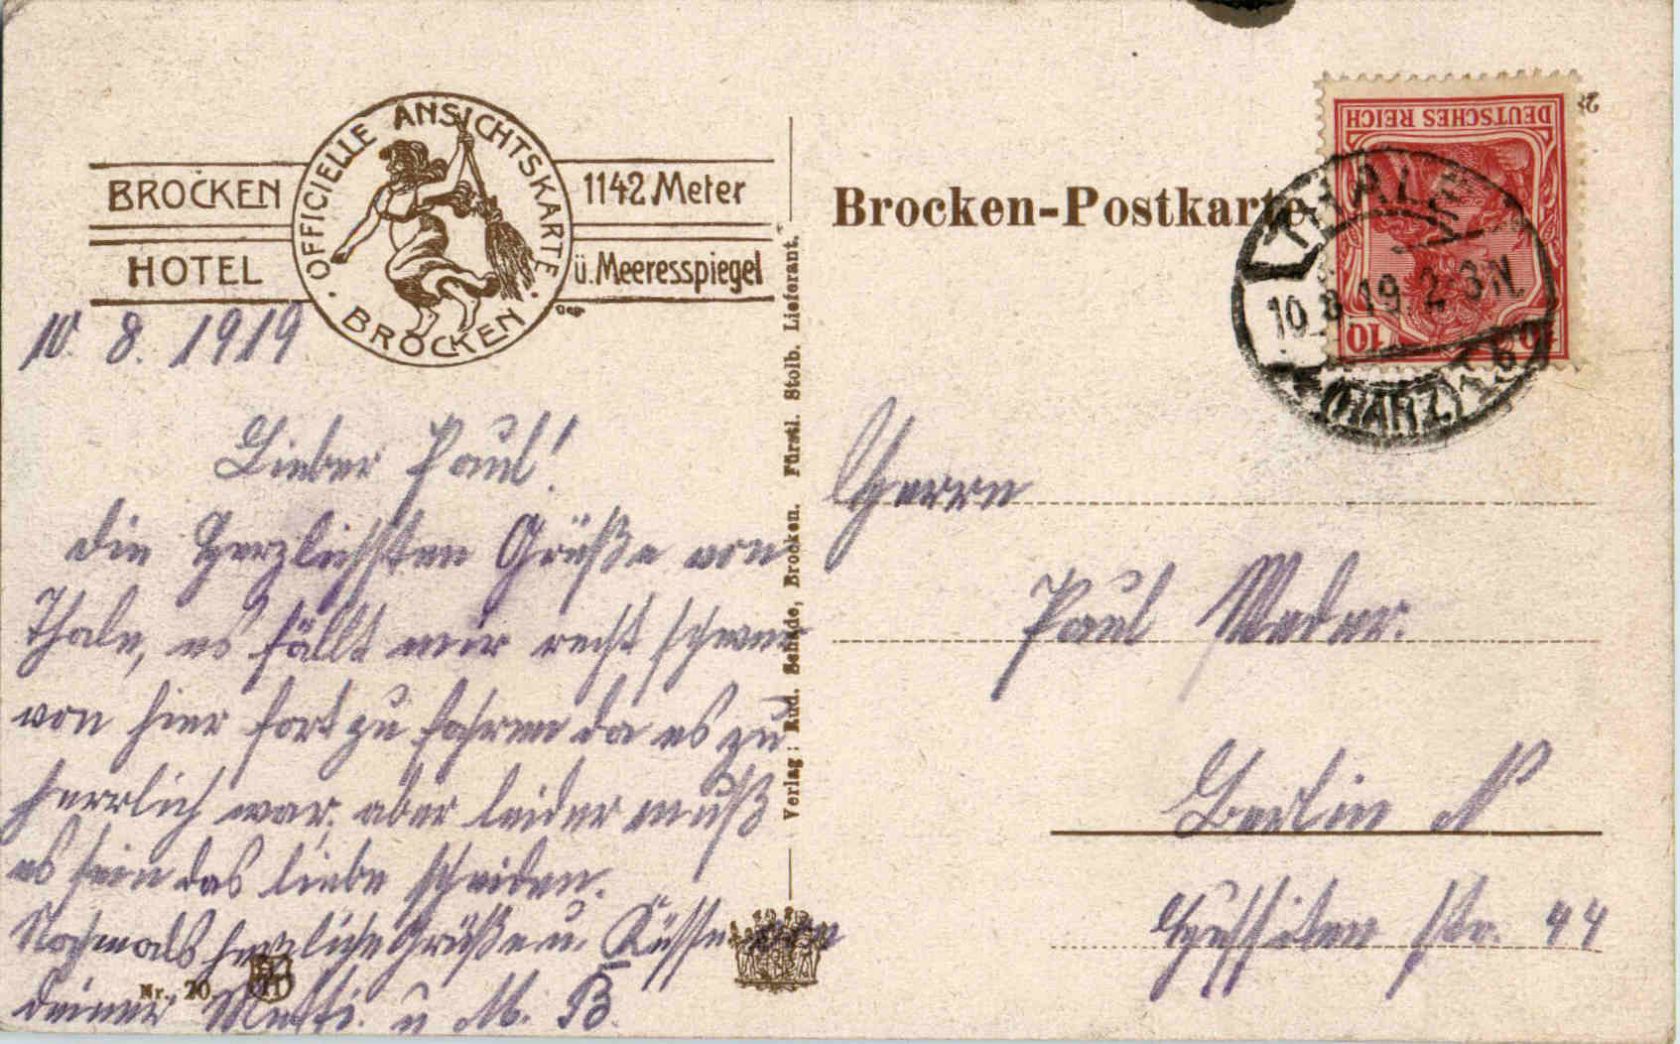 OFFICIELLE ANSICHTSKARTE
BROCKEN
BROCKEN
HOTEL
1142 Meter
ü. Meeresspiegel
10. 8. 1919
Lieber Paul!
die herzlichsten Grüße von
Thale, es fällt mir recht schwer
von hier fort zu fahren da es zu
herrlich war. aber leider muß
es sein das liebe scheiden.
Nochmals herzliche Grüße u. Küsse von
deiner u M. B.
Nr. 20.
Verlag: Rud. Schade, Brocken. Fürstl. Stolb. Lieferant.
Brocken-Postkarte
DEUTSCHES REICH
10
THALE
10.8.19. 2-3N.
(HARZ)
Herrn
Paul Meder.
Berlin N
Hussiten Str. 44